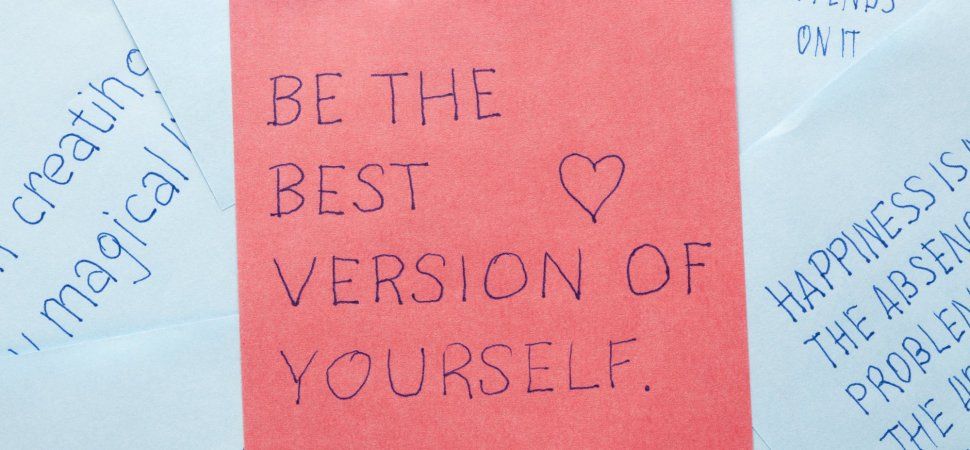 creating
magical
BE THE
BEST ♡
VERSION OF
YOURSELF.
ON IT
HAPPINESS IS
THE ABSEN
PROBLEM
THE